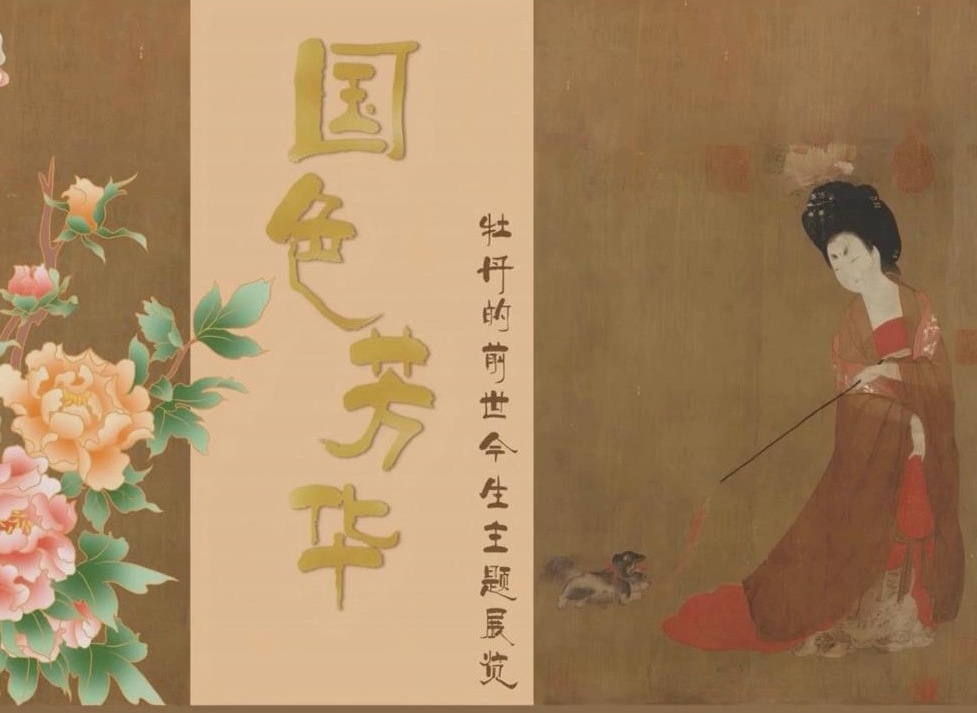 国色芳华
牡丹的前世今生主题展览